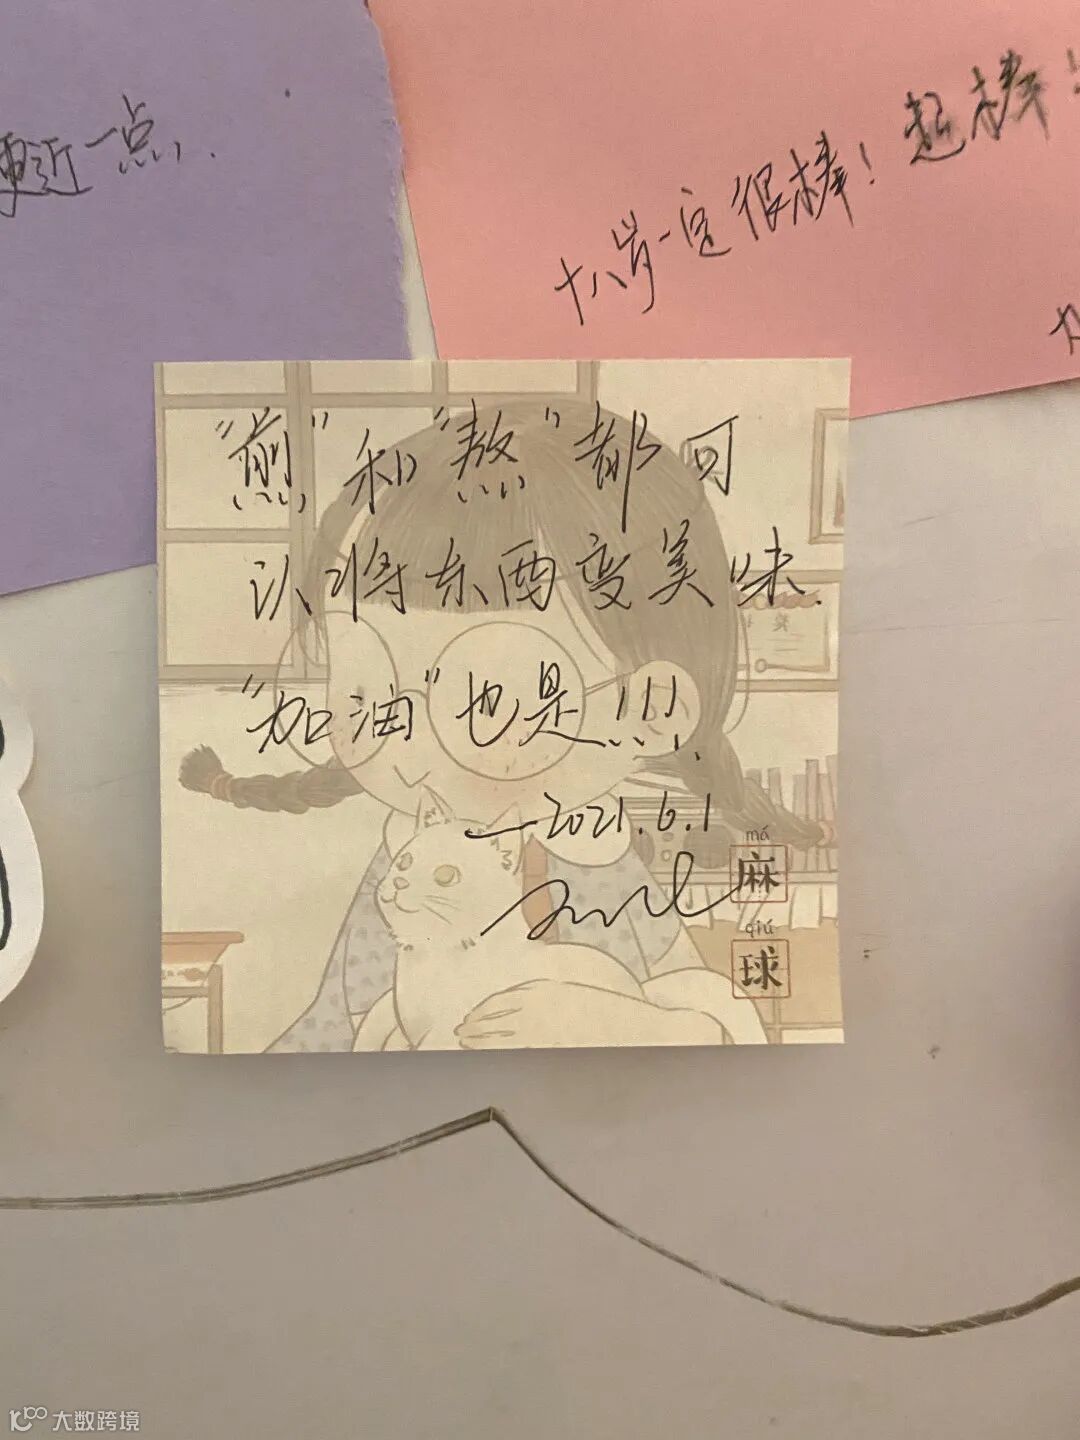 更近一点.
十八岁一定很棒！超棒！
"煎"和"熬"都可
以将东西变美味.
"加油"也是!!!
—2021.6.1
má
麻
qiú
球
大数跨境